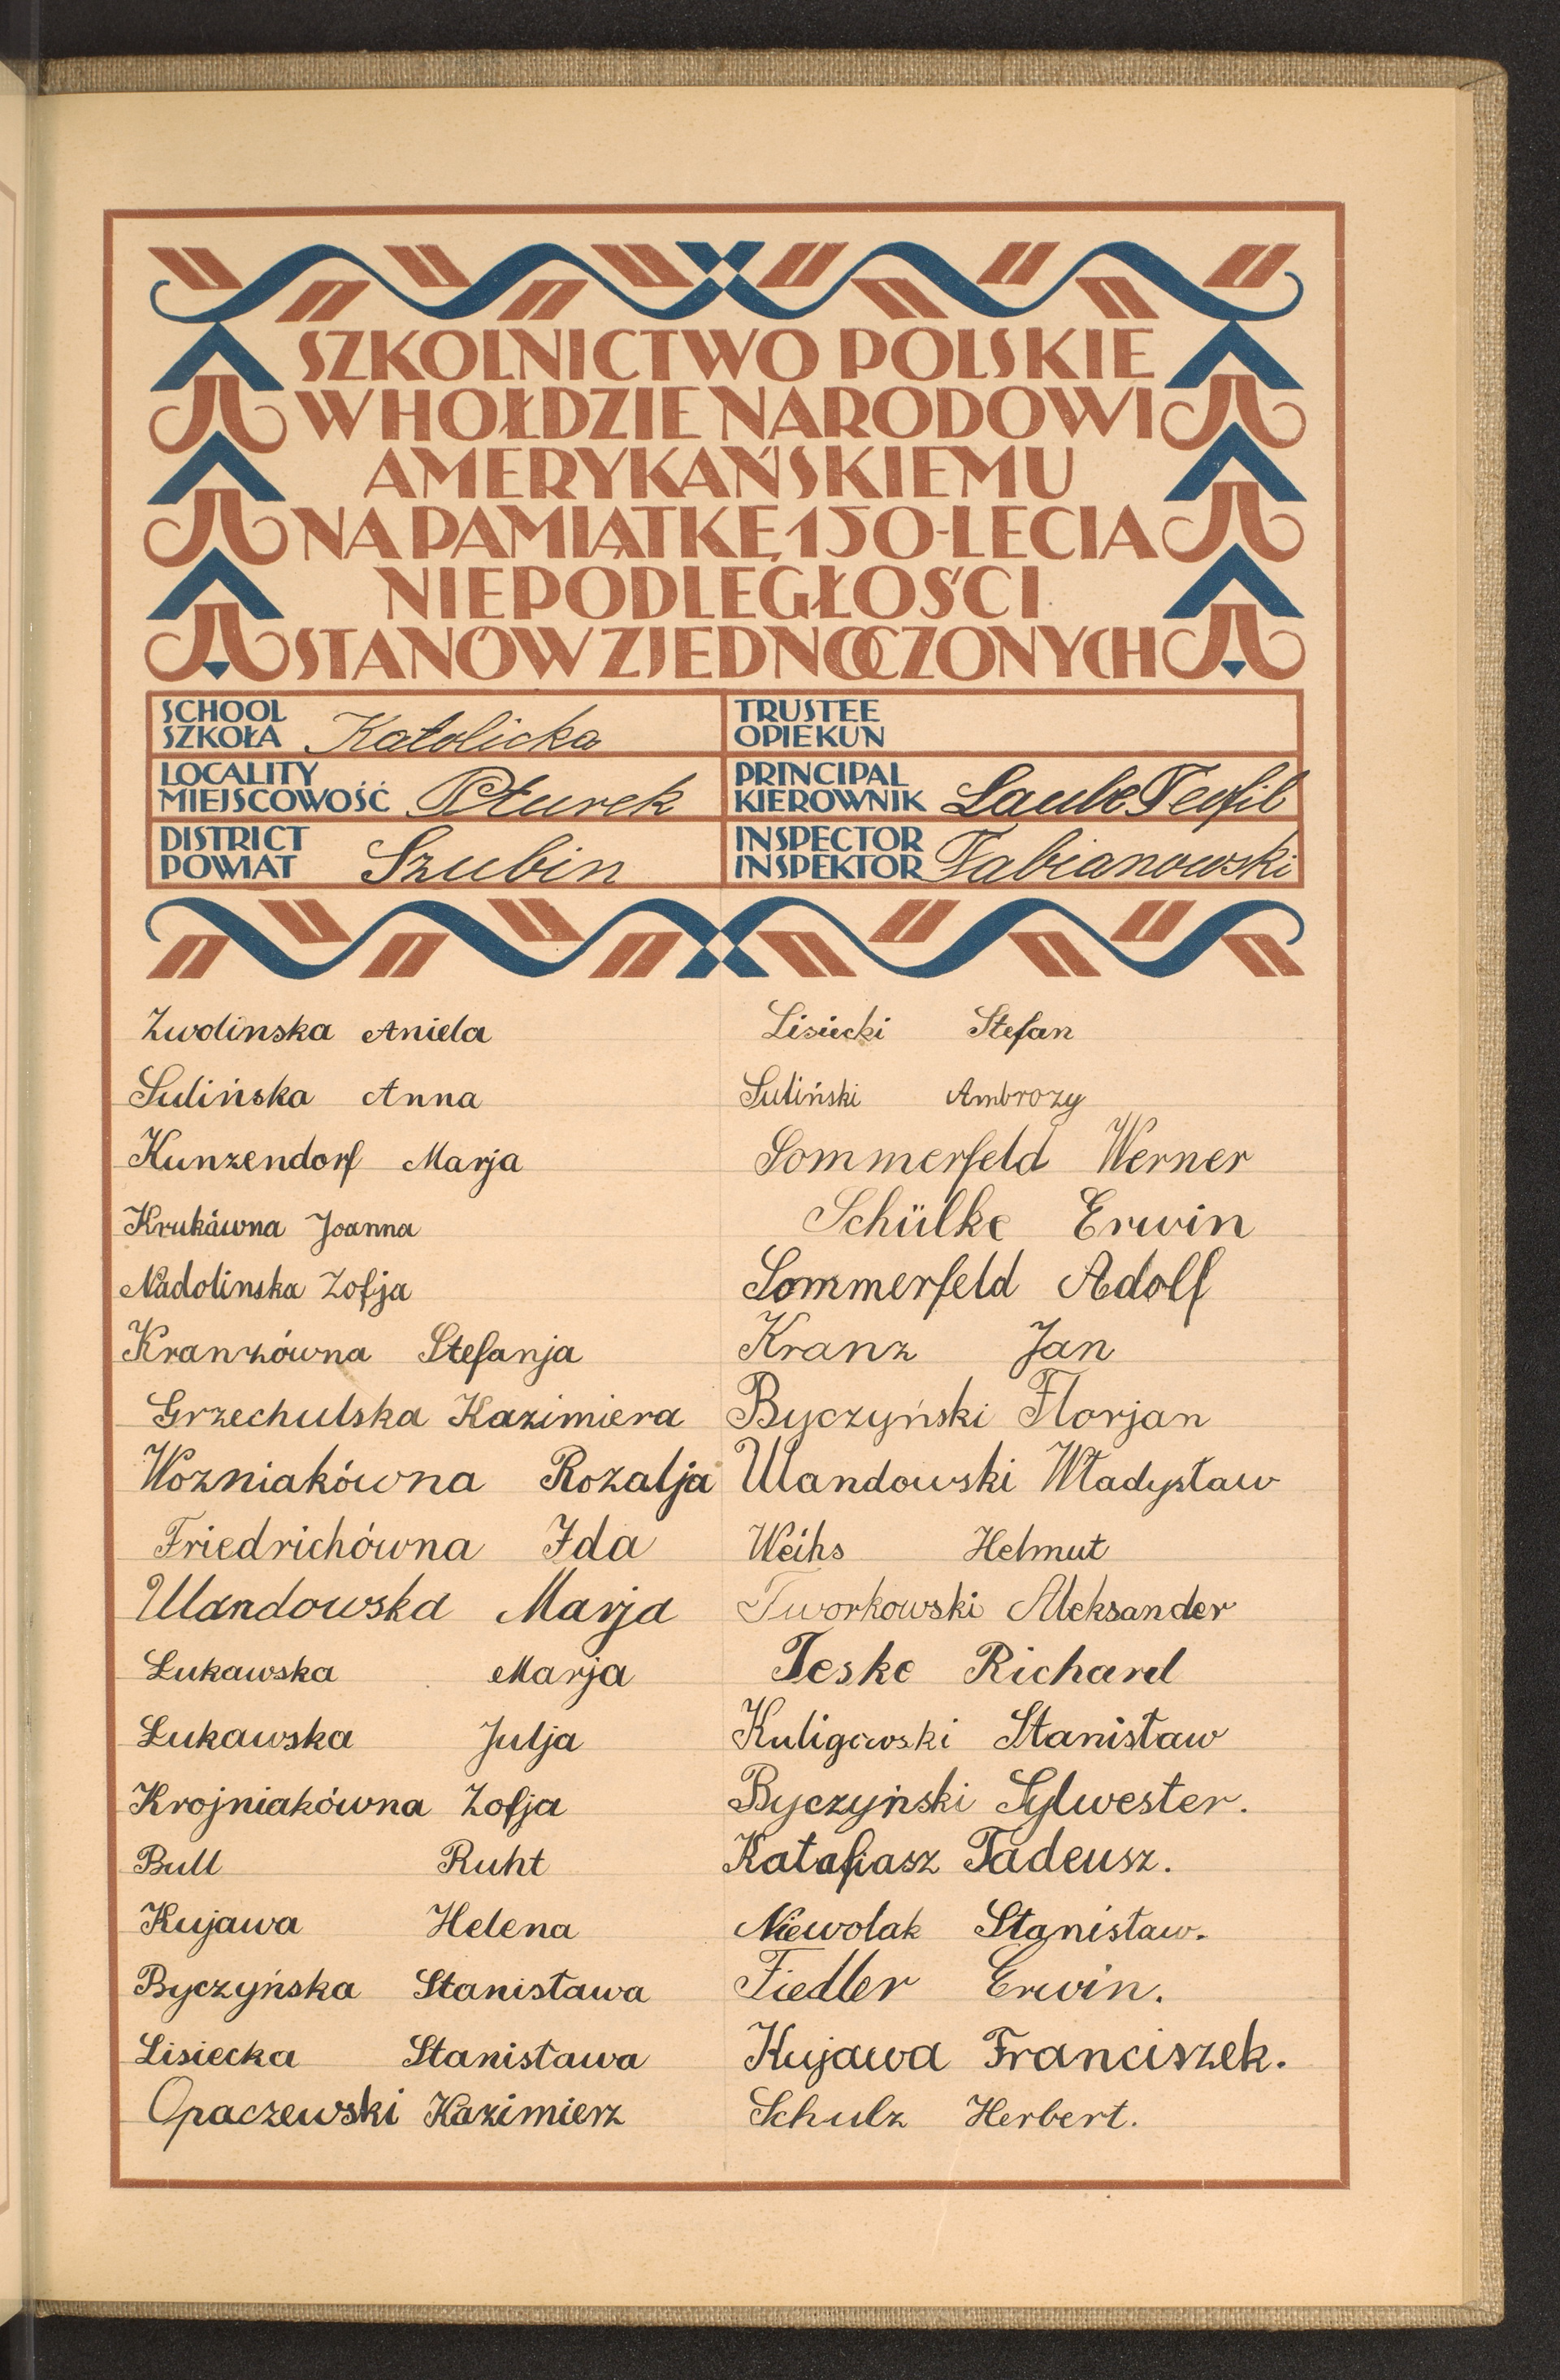 SZKOLNICTWO POLSKIE
W HOŁDZIE NARODOWI
AMERYKAŃSKIEMU
NA PAMIĄTKĘ 150-LECIA
NIEPODLEGŁOŚCI
STANÓW ZJEDNOCZONYCH
SCHOOL
SZKOŁA Katolicka
TRUSTEE
OPIEKUN
LOCALITY
MIEJSCOWOŚĆ Pturek
PRINCIPAL
KIEROWNIK Laube Teofil
DISTRICT
POWIAT Szubin
INSPECTOR
INSPEKTOR Fabianowski
Zwolinska Aniela
Sulińska Anna
Kunzendorf Marja
Krukáwna Joanna
Nadolinska Zofja
Kranzówna Stefanja
Grzechulska Kazimiera
Wozniakówna Rozalja
Friedrichówna Ida
Ulandowska Marja
Lukawska Marja
Lukawska Julja
Krojniakówna Zofja
Bull Ruht
Kujawa Helena
Byczyńska Stanisława
Lisiecka Stanisława
Opaczewski Kazimierz
Lisiecki Stefan
Suliński Ambrozy
Sommerfeld Werner
Schülke Erwin
Sommerfeld Adolf
Kranz Jan
Byczyński Florjan
Ulandowski Władysław
Weihs Helmut
Tworkowski Aleksander
Teske Richard
Kuligowski Stanisław
Byczyński Sylwester.
Katafiasz Tadeusz.
Niewolak Stanisław.
Fiedler Erwin.
Kujawa Franciszek.
Schulz Herbert.